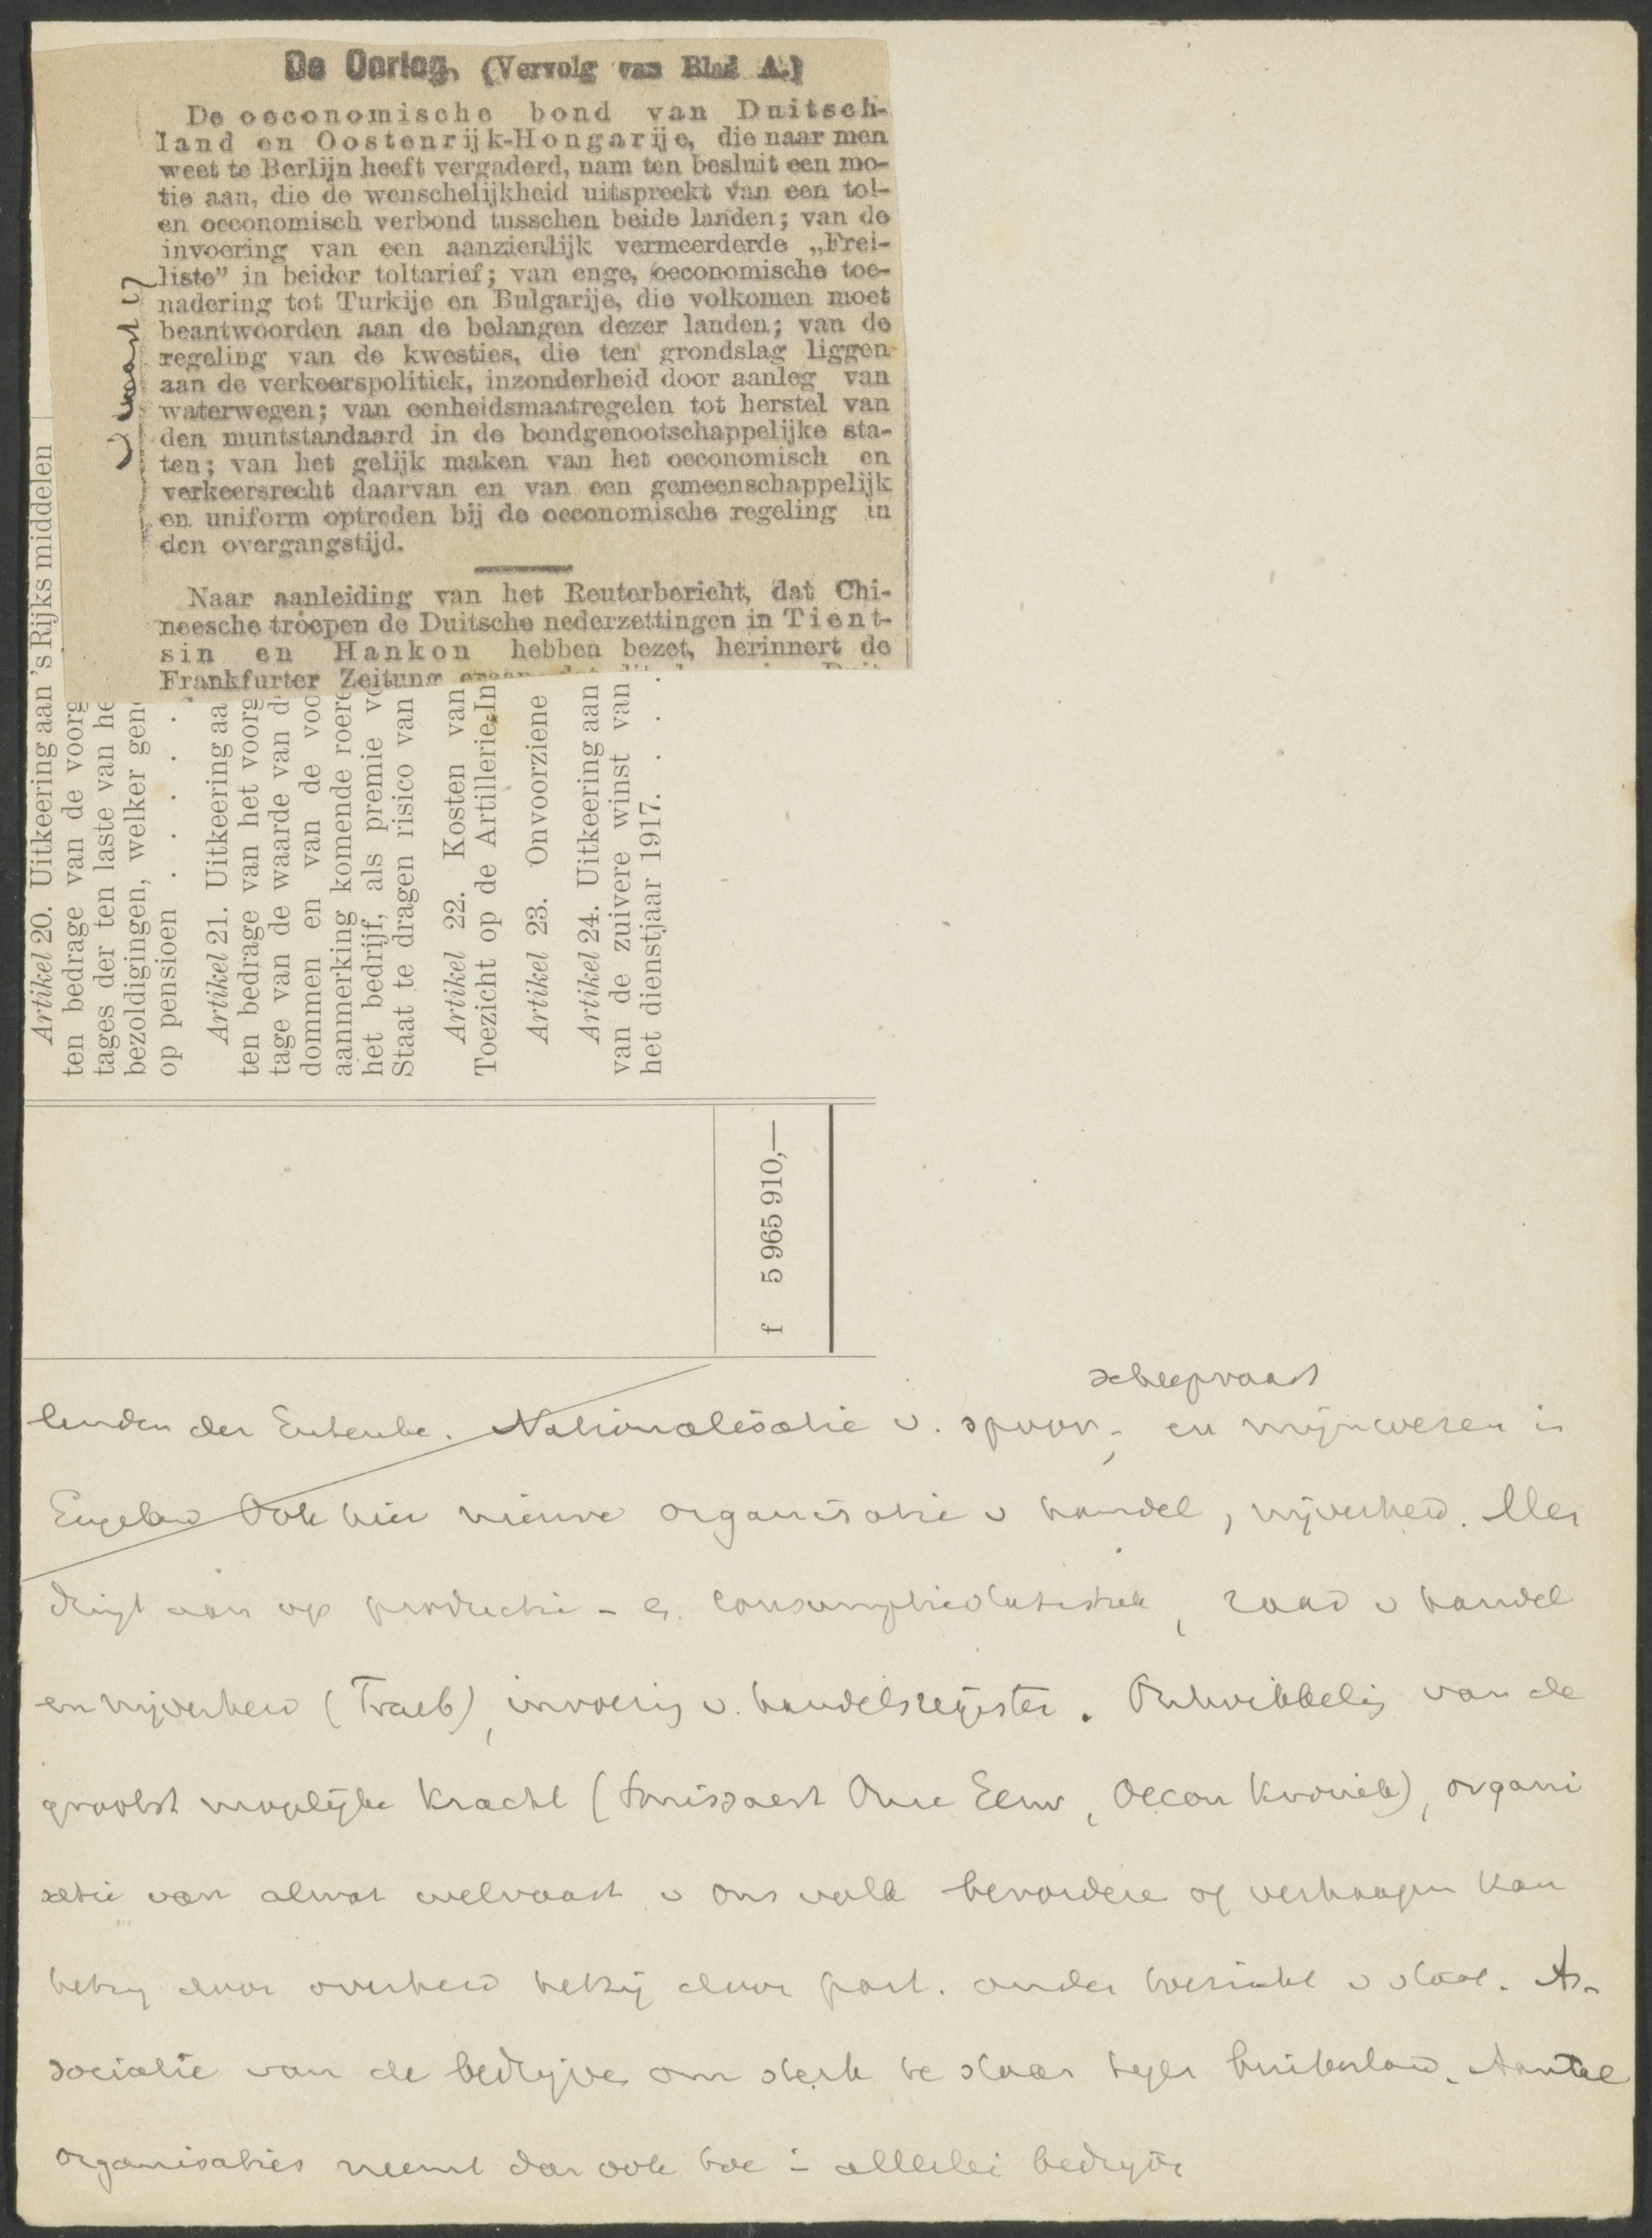 De Oorlog. (Vervolg van Blad A.)
De oeconomische bond van Duitsch-
land en Oostenrijk-Hongarije, die naar men
weet te Berlijn heeft vergaderd, nam ten besluit een mo-
tie aan, die de wenschelijkheid uitspreekt van een tol-
en oeconomisch verbond tusschen beide landen; van de
invoering van een aanzienlijk vermeerderde „Frei-
liste” in beider toltarief; van enge, oeconomische toe-
nadering tot Turkije en Bulgarije, die volkomen moet
beantwoorden aan de belangen dezer landen; van de
regeling van de kwesties, die ten grondslag liggen
aan de verkeerspolitiek, inzonderheid door aanleg van
waterwegen; van eenheidsmaatregelen tot herstel van
den muntstandaard in de bondgenootschappelijke sta-
ten; van het gelijk maken van het oeconomisch en
verkeersrecht daarvan en van een gemeenschappelijk
en uniform optreden bij de oeconomische regeling in
den overgangstijd.
Naar aanleiding van het Reuterbericht, dat Chi-
neesche troepen de Duitsche nederzettingen in Tient-
sin en Hankon hebben bezet, herinnert de
Frankfurter Zeitung
Artikel 20. Uitkeering aan 's Rijks middelen
ten bedrage van de voorg
tages der ten laste van he
bezoldigingen, welker gen
op pensioen . . . . .
Artikel 21. Uitkeering aa
ten bedrage van het voorg
tage van de waarde van d
dommen en van de voo
aanmerking komende roere
het bedrijf, als premie vo
Staat te dragen risico van
Artikel 22. Kosten van
Toezicht op de Artillerie-In
Artikel 23. Onvoorziene
Artikel 24. Uitkeering aan
van de zuivere winst van
het dienstjaar 1917. . . .
f 5 965 910,—
scheepvaart
landen der Entente. Nationalisatie v. spoor-, en mijnwezen in
Engeland Ook hier nieuwe organisatie v handel, nijverheid. Alles
dringt aan op productie- e. consumptiestatistiek, raad v handel
en nijverheid (Treub), invoering v. handelsregister. Ontwikkeling van de
grootst mogelijke kracht ( Onze Eeuw, Oecon Kroniek), organi
satie van alwat welvaart v ons volk bevordere of verhoogen kan
hetzij door overheid hetzij door part. onder toezicht v staat. As-
sociatie van de bedrijve om sterk te staan tegen buitenland. Aantal
organisaties neemt dan ook toe in allerlei bedrijve